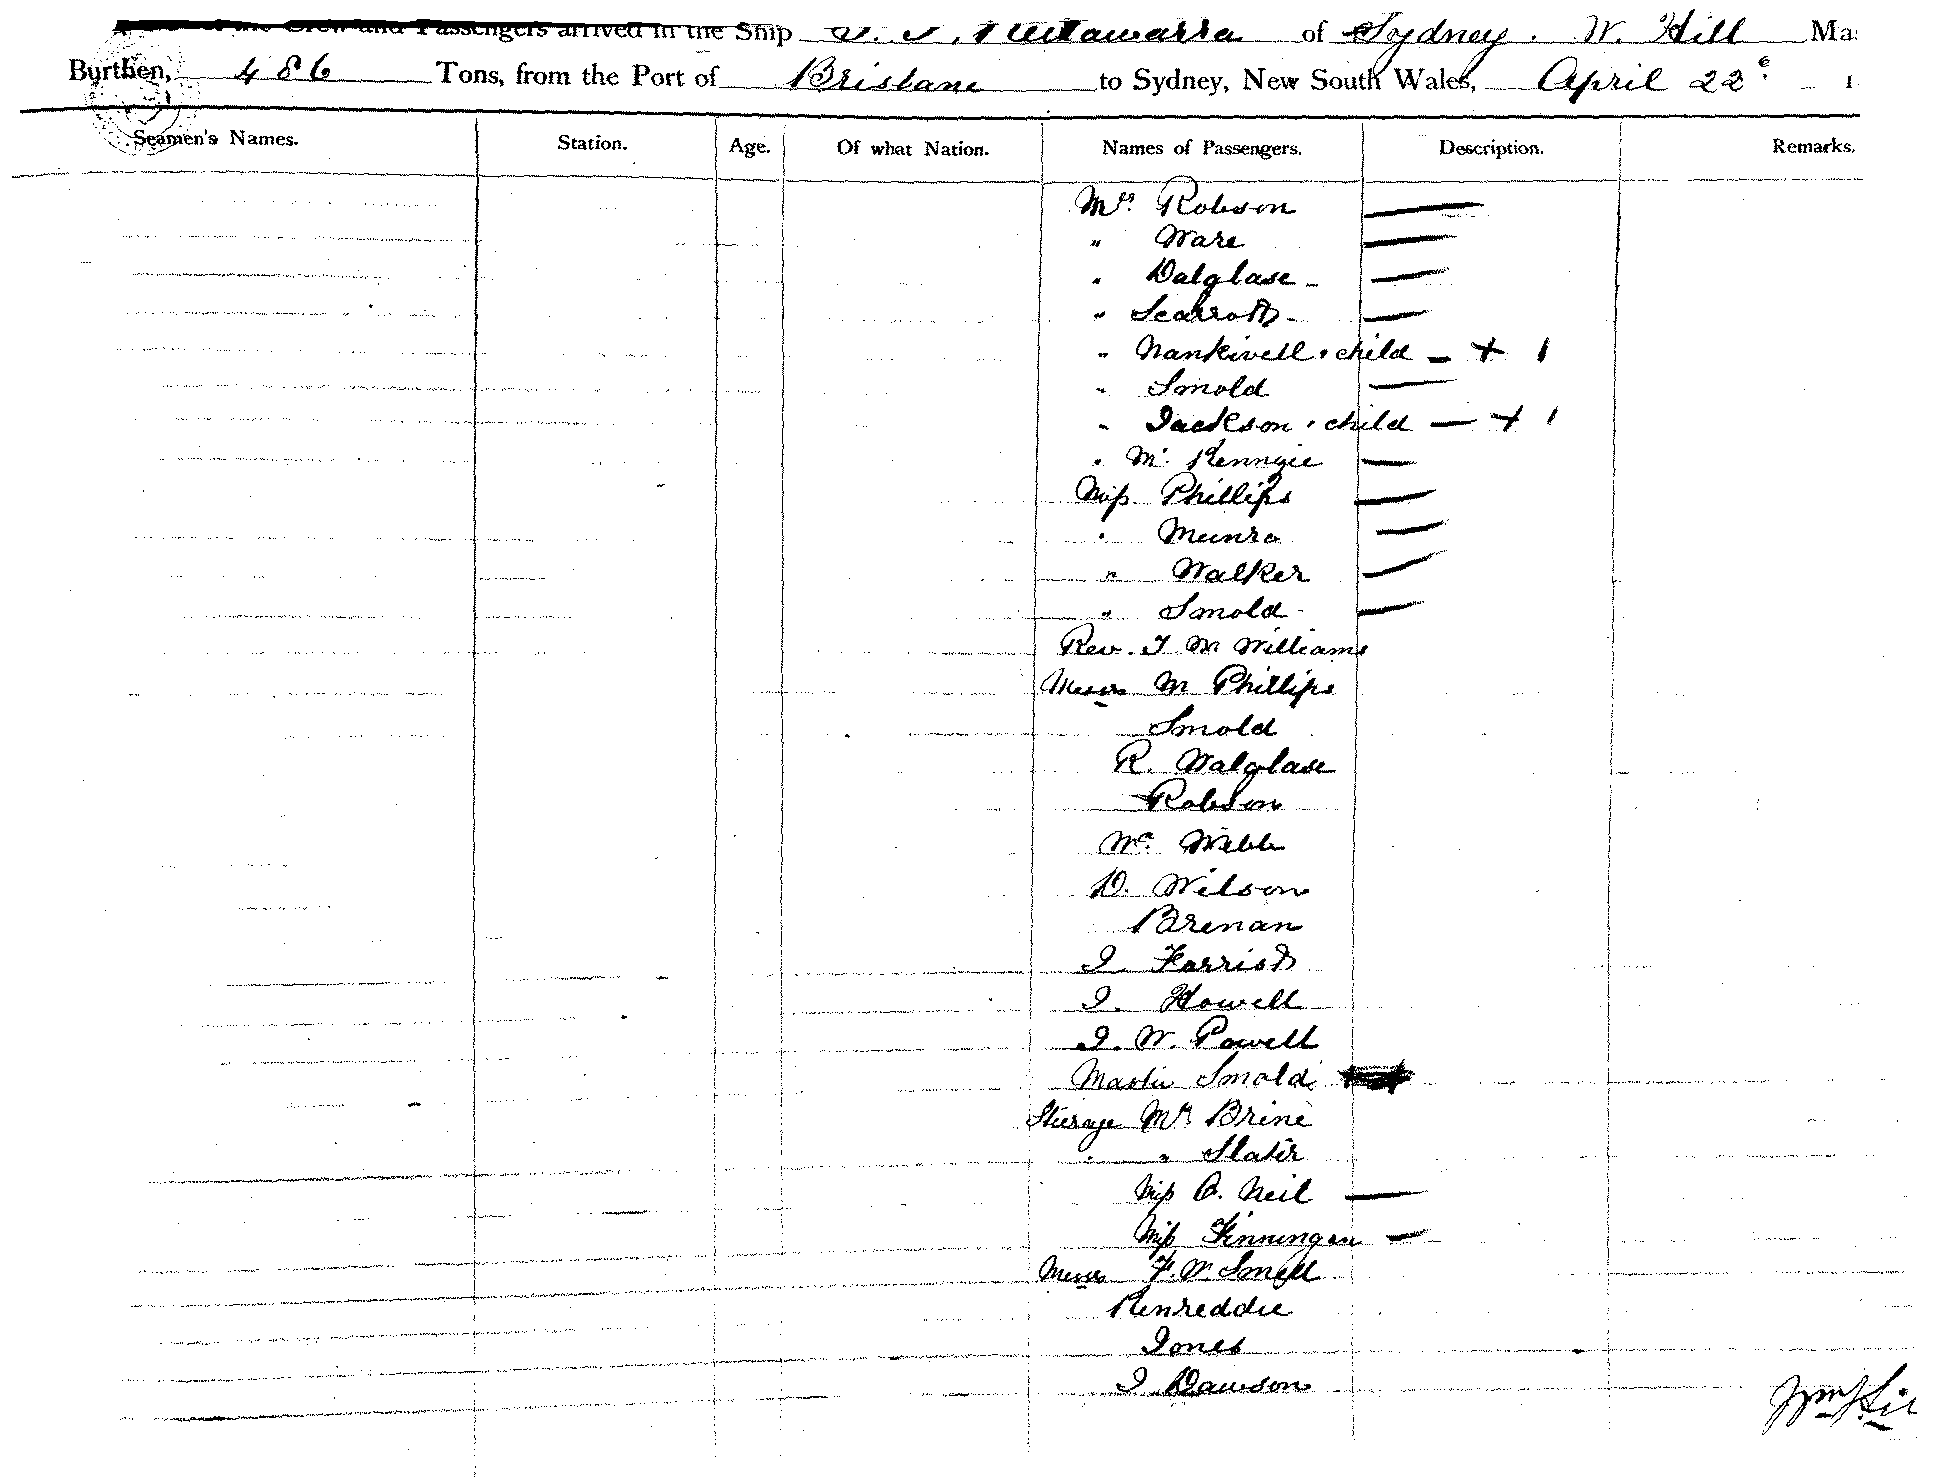 of the Crew and Passengers arrived in the Ship S. S. Kallawarra of Sydney. W. Hill Mas
Burthen, 486 Tons, from the Port of Brisbane to Sydney, New South Wales, April 22e 1
Seamen's Names. Station. Age. Of what Nation. Names of Passengers. Description. Remarks.
Mrs. Robson —
" Ware —
" Dalglase - —
" Scarrott - —
" Nankivell & child — + 1
" Smold —
" Jackson & child — + 1
" Mc Kennzie —
Miss Phillips —
" Munro —
" Walker —
" Smold —
Rev. T M Williams
Messrs M Phillips
Smold
R. Walglase
Robson
Wm Webb
D. Wilson
Brenan
J. Farrist
J. Howell
J. W. Powell
Master Smold
Steerage Mrs Brine
" " Slater
Miss O. Neil —
Miss Finningan —
Messrs F. W. Smell
Kenreddie
Jones
J Dawson
Wm Hil